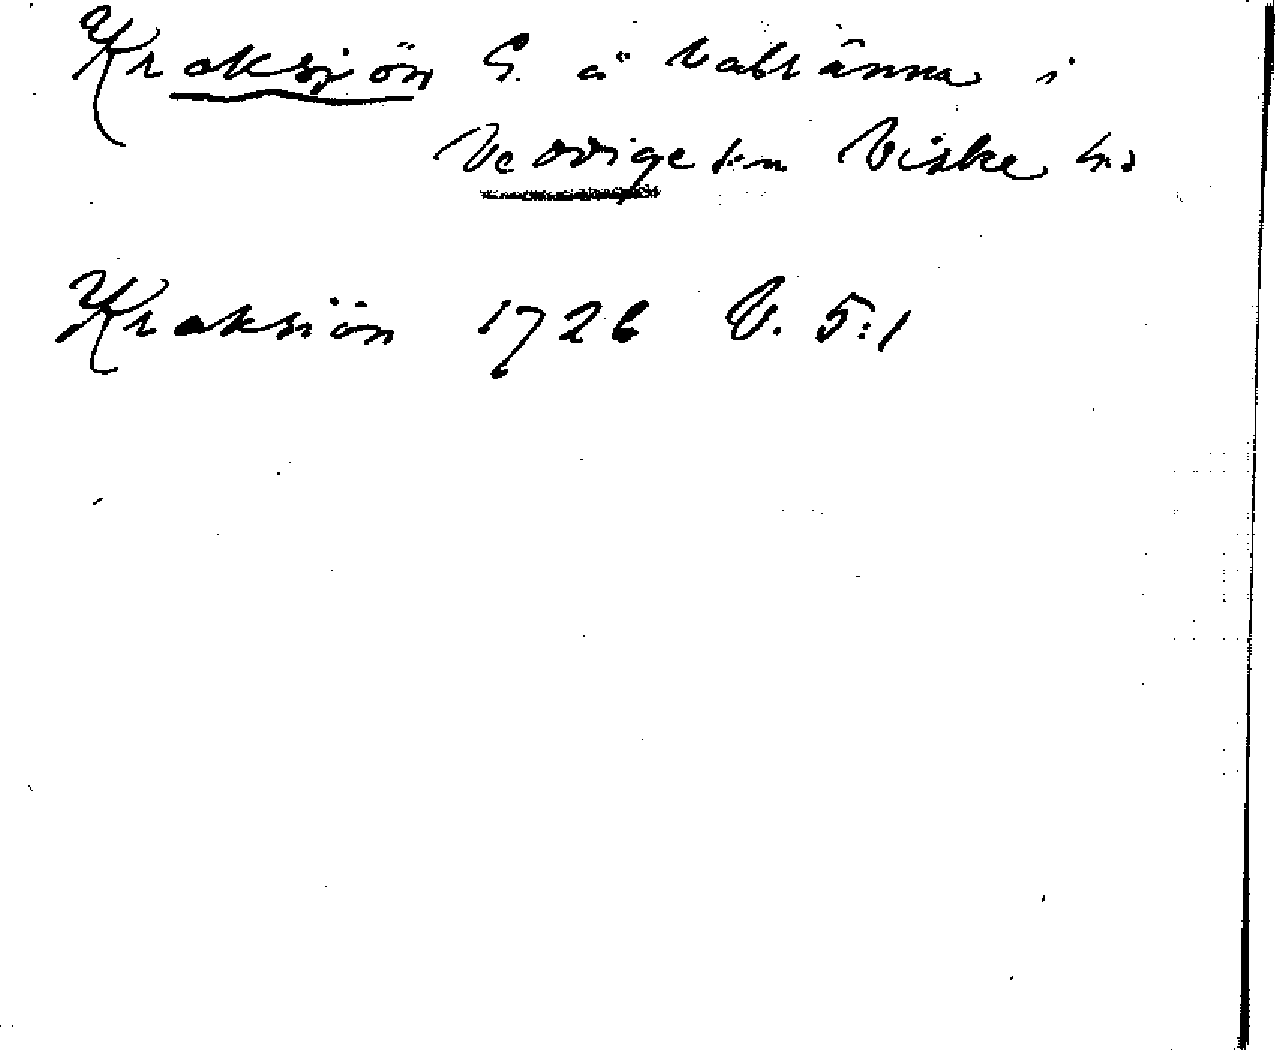 Kraksjön S. å Vabränna i
Veddige sn Viske hd
Kraksiön 1726 V. 5:1